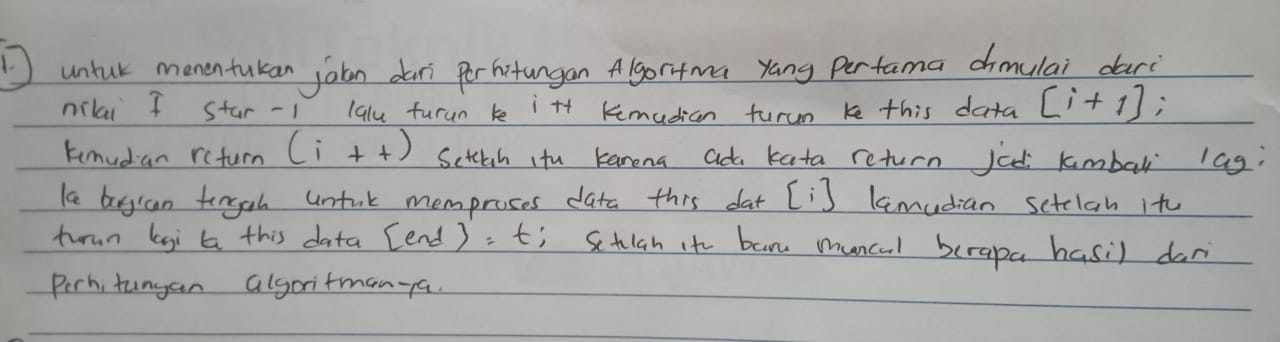 1.) untuk menentukan jalan dari Perhitungan Algoritma yang pertama dimulai dari
nilai I star -1 lalu turun ke i ++ kemudian turun ke this data [i + 1];
kemudian return (i + +) setelah itu karena ada kata return jadi kembali lagi
ke bagian tengah untuk memproses data this dat [i] kemudian setelah itu
turun lagi ke this data [end] = t; setelah itu baru muncul berapa hasil dari
Perhitungan algoritman-ya.